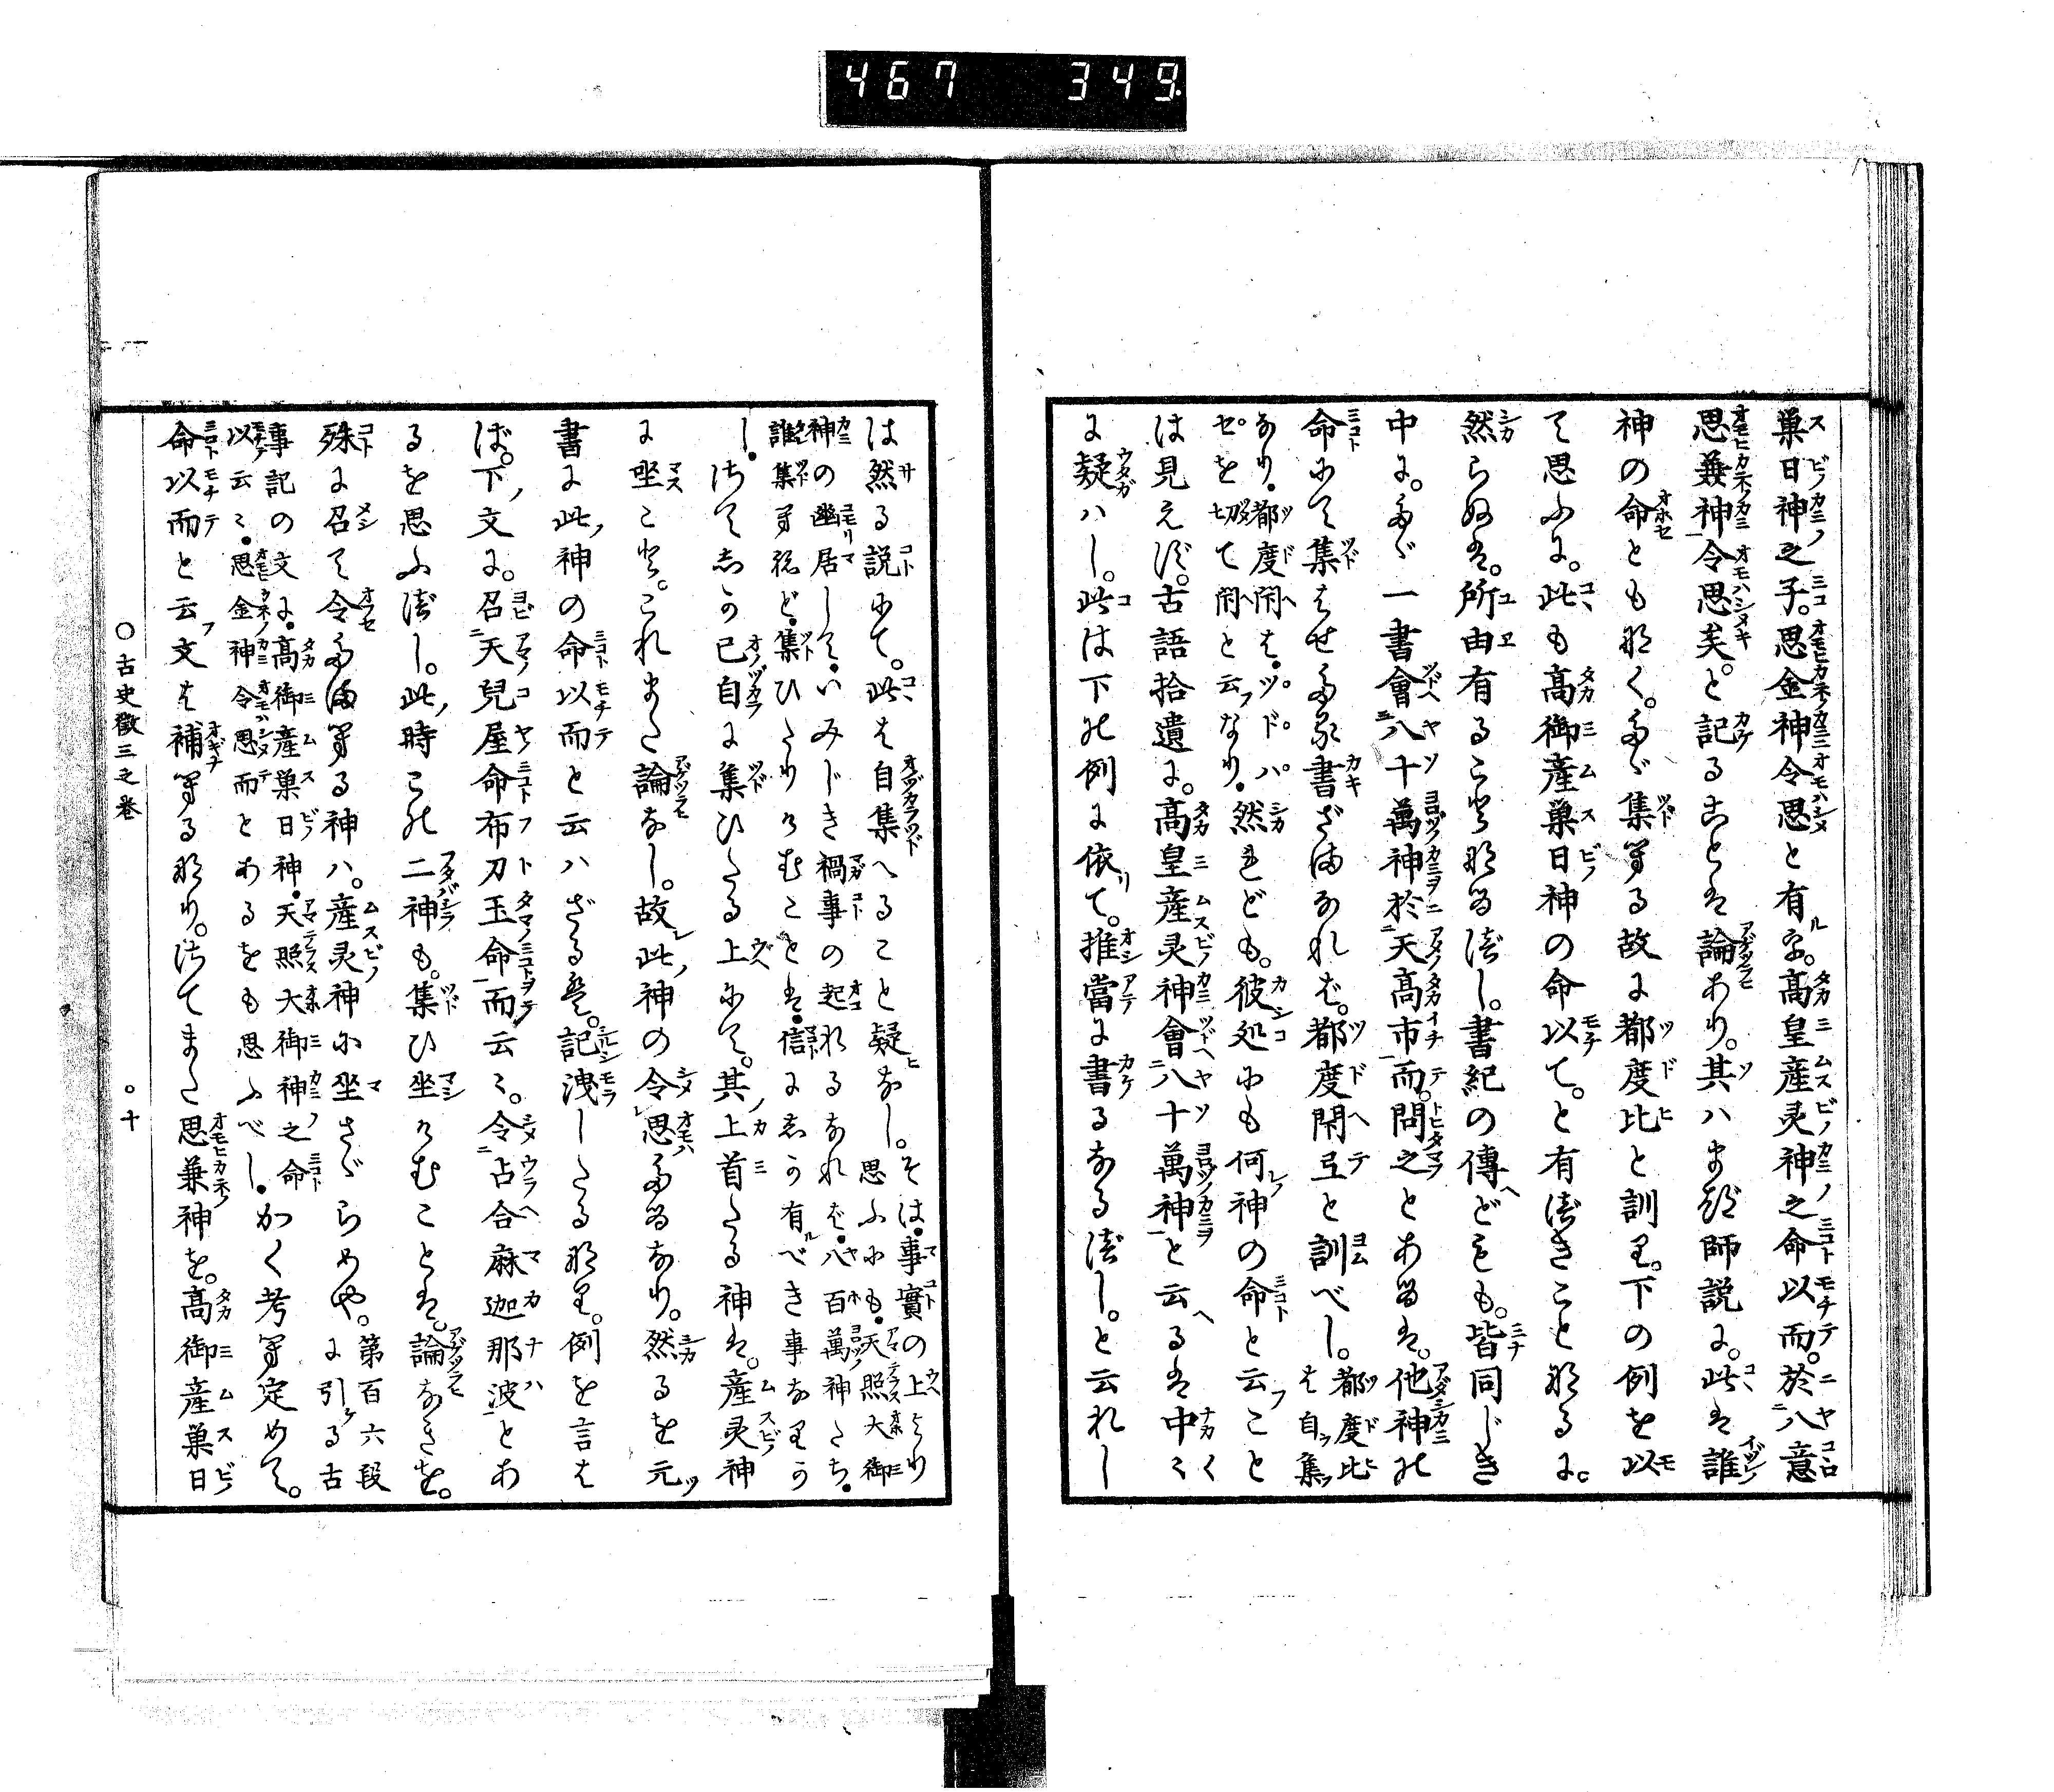 467 349
巣日神之子。思金神令思と有を。高皇産灵神之命以而。於八意
思兼神令思矣。と記ることは論あり。其ハまづ師説に。此は誰
神の命とも那く。たゞ集まる故に都度比と訓り。下の例を以
て思ふに。此も高御産巣日神の命以て。と有べきこと那るに。
然らぬは。所由有ること那るべし。書紀の傳どもゝ。皆同じき
中に。たゞ一書會八十萬神於天高市而。問之とあるは。他神の
命にて集はせたる書ざまなれば。都度閇弖と訓べし。都度比は自集
なり。都度閇は。ツドハセを切て閇と云なり。然れども。彼処にも何神の命と云こと
は見えず。古語拾遺に。高皇産灵神會八十萬神と云へるは中々
に疑ハし。此は下の例に依て。推當に書るなるべし。と云れし
は然る説にて。此は自集へること疑なし。そは。事實の上より思ふにも。天照大御
神の幽居して。いみじき禍事の起れるなれば。八百萬神たち。
誰集まねど。集ひたりけむことは。信に志か有べき事なりか
し。斯て志か己自に集ひたる上にて。其上首たる神は。産灵神
に坐こと。これまた論なし。故此神の令思たるなり。然るを元
書に此神の命以而と云ハざるは。記洩したる那り。例を言は
ば。下文に。召天兒屋命布刀玉命而云々。令占合麻迦那波とあ
るを思ふべし。此時この二神も。集ひ坐けむことは。論なきを。
殊に召て令たまへる神ハ。産灵神に坐さゞらめや。第百六段に引る古
事記の文に。高御産巣日神。天照大御神之命以云々。思金神令思而とあるをも思ふべし。かく考へ定めて。
命以而と云文を補へる那り。斯てまた思兼神を。高御産巣日
○古史徴三之巻 ○十